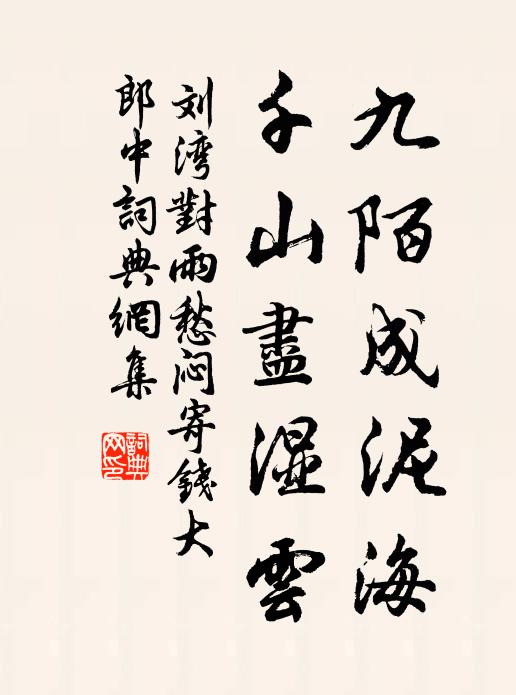 九陌成泥海
千山盡湿雲
刘湾對雨愁闷寄錢大
郎中詞典網集
詞典网印